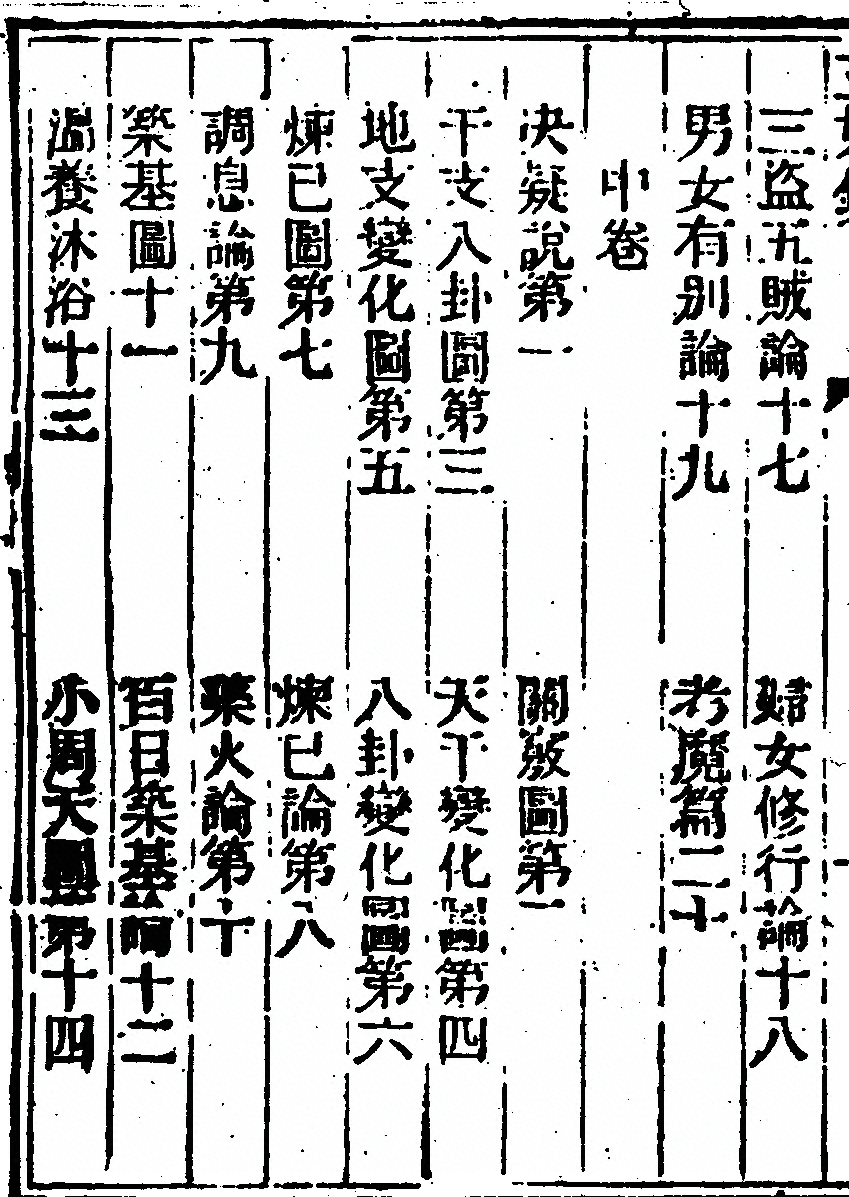 三盜五賊論十七　婦女修行論十八
男女有別論十九　考魔篇二十
中卷
决疑說第一　關竅圖第二
干支八卦圖第三　天干變化圖第四
地支變化圖第五　八卦變化圖第六
煉己圖第七　煉己論第八
調息論第九　藥火論第十
築基圖十一　百日築基論十二
溫養沐浴十三　小周天圖第十四